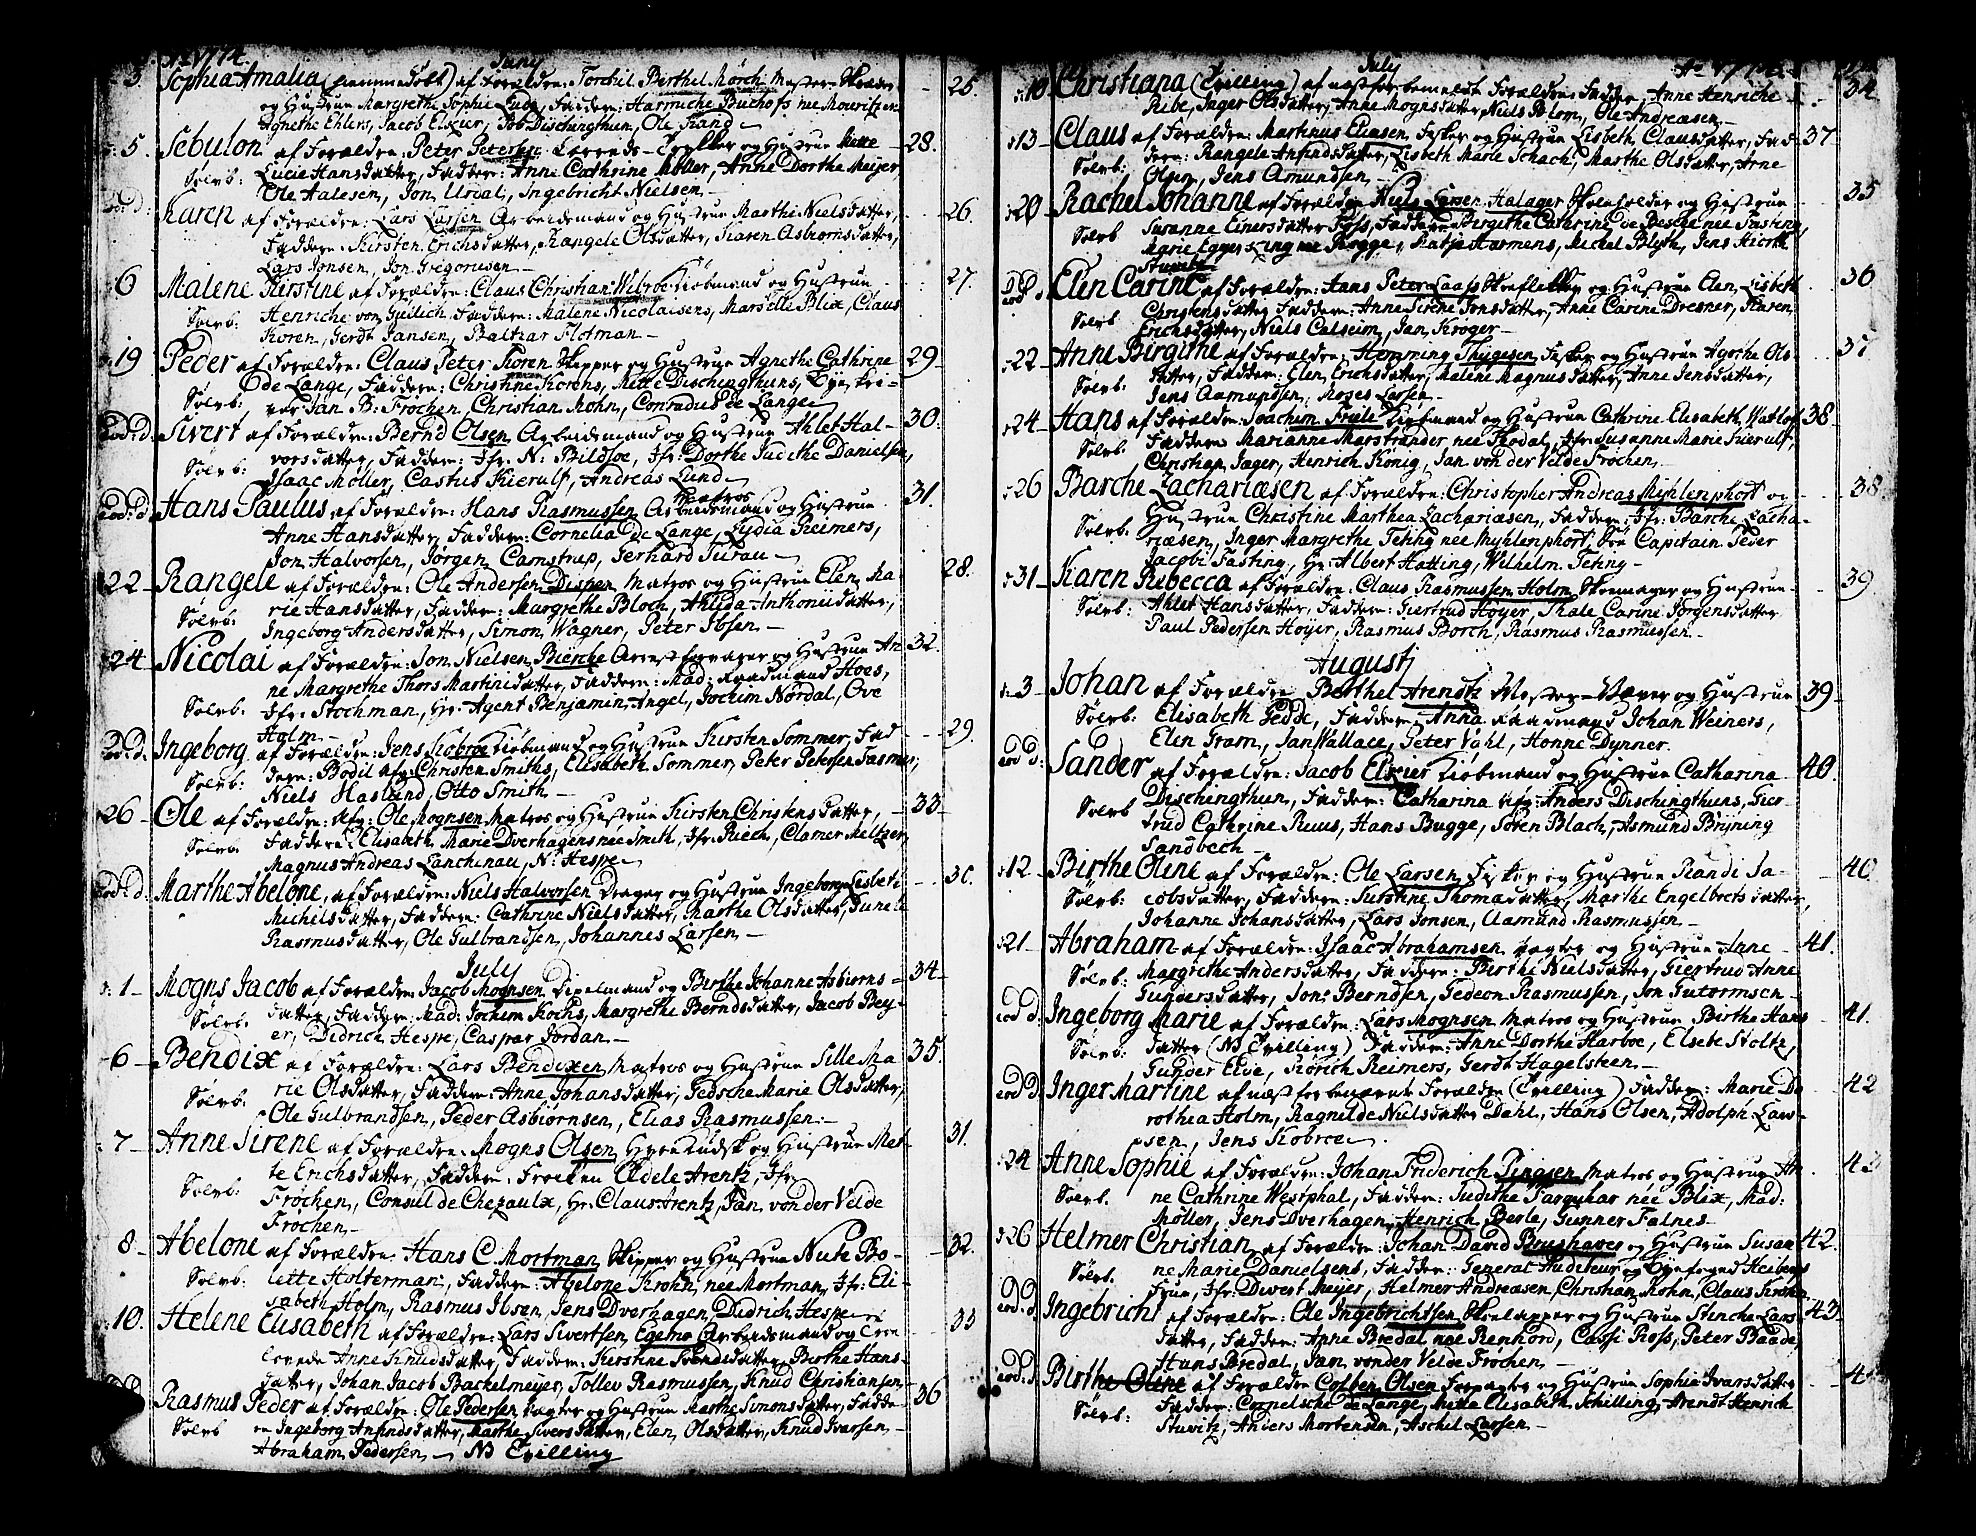 Ao 1774.
Juny
3. Sophia Amalia (hiemme døbt) af Forældre: Torchil Berthel Mörch Mester - 25.
og Hustrue Margrethe Sophie Lude, Faddere: Harmiche Buchofs née Mowritzen
Agnethe Ehlers, Jacob Elxier, Job Dischingthun, Ole Strand
5. Sebulon af Forældre: Peter Petersen og Hustrue Mette 28.
Sølvb: Lucie Hansdatter, Faddere: Anne Cathrine Möller, Anne Dorthe Meijer,
Ole Aalesen, Jon Urdal, Ingebricht Nielsen
eod: d: Karen af Forældre: Lars Larsen Arbeidsmand og Hustrue Marthe Nielsdatter, 26.
Faddere: Kirsten Erichsdatter, Rangele Olsdatter, Karen Asbiornsdatter,
Lars Jonsen, Jon Gregoriusen
6 Malene Kirstine af Forældre: Claus Christian Wibroe Kiöbmand og Hustrue 27.
Sølvb: Henriche von Gülich, Faddere: Malene Nicolaisens, Marselie Blix, Claus
Koren, Gerdt Jansen, Baltzar Flotman
19 Peder af Forældre: Claus Peter Koren Skipper og Hustrue Agnethe Cathrine 29
Sølvb: de Lange, Faddere: Christine Korens, Mette Dischingthuns,
Jan B: Fröchen, Christian Mohn, Conradus de Lange
eod: d. Sivert af Forældre: Bernd Olsen Arbeidsmand og Hustrue Ahlet Hal- 30.
Sølvb: vorsdatter, Faddere: Jfr. N: Bildsöe, Jfr: Dorthe Judithe Danielsen,
Isaac Möller, Castus Kierulf, Andreas Lund
eod: d Hans Paulus af Forældre: Hans Rasmussen Matros og Hustrue 31.
Anne Hansdatter, Faddere: Cornelia de Lange, Lydia Reimers,
Jon Halvorsen, Jörgen Camstrup, Gerhard Turau
22 Rangele af Forældre: Ole Andersen Matros og Hustrue Elen Ma 28.
Sølvb. rie Hansdatter, Faddere: Margrethe Bloch, Ahlida Anthoniidatter,
Ingeborg Andersdatter, Simon Wagner, Peter Ibsen
24 Nicolai af Forældre: Jon Nielsen Bierche og Hustrue An 32.
ne Margrethe Thors Martinidatter, Faddere: Mad: Raadmand Hoes,
Sølvb. Jfr: Stochman, Hr. Agent Benjamin Angel, Jochim Nordal, Ove
Holm
eod: d. Ingeborg af Forældre: Jens Kobroe Kiöbmand og Hustrue Kirsten Sommer, Fad 29.
Sølvb: dere: Bodil afg: Christen Smiths, Elisabeth Sommer, Peter Petersen Fasmer,
Niels Haslund, Otto Smith
26 Ole af Forældre: Afg: Ole Mognsen Matros og Hustrue Kirsten Christensdatter, 33
Sølvb: Faddere: Elisabeth Marie Dverhagens née Smith, Jfr: Riech, Clamer Meltzer,
Magnus Andreas Lanchenau, N: Hespe
eod: d. Marthe Abelone, af Forældre: Niels Halvorsen Drager og Hustrue Ingeborg Lisbeth 30.
Michilsdatter, Faddere: Cathrine Nielsdatter, Marthe Olsdatter, Sunele
Rasmusdatter, Ole Gulbrandsen, Johannes Larsen
July
1 Mogns Jacob af Forældre: Jacob Mognsen og Birthe Johanne Asbiorns= 34
Sølvb. datter, Faddere: Mad: Jochim Kochs, Margrethe Berndsdatter, Jacob Bey-
er, Didrich Hespe, Caspar Jordan
6 Bendix af Forældre: Lars Bendixen Matros og Hustrue Sille Ma 35.
Sølvb. rie Olsdatter, Faddere: Anne Johansdatter, Gedsche Marie Olsdatter,
Ole Gulbrandsen, Peder Asbiörnsen, Elias Rasmussen
7 Anne Sirene af Forældre: Mogns Olsen og Hustrue Mar 31.
te Erichsdatter, Faddere: Fröcken Adele Arentz, Jfr:
Sølvb: Fröchen, Consul de Chezaulx, Hr. Claus Arentz, Jan von der Velde
Fröchen
8 Abelone af Forældre: Hans C. Mortman Skipper og Hustrue Nille Bo- 32.
Sølvb: lette Holterman, Faddere: Abelone Krohn née Mortman, Jfr: Eli-
sabeth Holm, Rasmus Ibsen, Jens Dverhagen, Didrich Hespe
10. Helene Elisabeth af Forældre: Lars Sivertsen Arbeidsmand og 33
lovede Anne Knudsdatter, Faddere: Kierstine Svendsdatter, Birthe Hans-
datter, Johan Jacob Backelmeyer, Tollev Rasmussen, Knud Christiansen
Rasmus Peder af Forældre: Ole Pedersen og Hustrue Marthe Simonsdatter, Fadde- 36
Sølvb re Ingeborg Anfindsdatter, Marthe Siversdatter, Elen Olsdatter, Knud Ivarsen
Abraham Pedersen NB Tvilling
July
Ao 1774
10 Christiana (Tvilling) af næstforbenævnte Forældre, Fadder: Anne Henriche 34
Ribe, Inger Olsdatter, Anne Mognsdatter, Niels Blom, Ole Andreasen
13 Claus af Forældre: Martinus Eliasen, Fisker og Hustrue Lisbeth Clausdatter, Fad 37
Sølvb. dere: Rangele Anfindsdatter, Lisbeth Marie Schach, Marthe Olsdatter, Arne
Olsen, Jens Amundsen
20 Rachel Johanne af Forældre Niels Larsen Halager og Hustrue 35
Sølvb Susanne Einersdatter Foss, Faddere: Birgithe Cathrine de Besche née Fasting,
Marie Eggerking née Rogge, Katje Harmens, Michel Blyth, Jens Hiorth
Stuwitz
eod d. Elen Carine af Forældre: Hans Peter Laass og Hustrue Elen Lisbeth 36
Sølvb Christensdatter Faddere: Anne Sirene Jonsdatter, Anne Carine Dresner, Karen
Erichsdatter, Niels Calseim, Jan Kröger
22 Anne Birgithe af Forældre: Hemming Thygesen, Fisker og Hustrue Agethe Ols- 37
Sølvb: datter, Faddere: Elen Erichsdatter, Malene Magnusdatter, Anne Jensdatter,
Jens Aamundsen, Moses Larsen
24 Hans af Forældre: Joachim Friele Kiöbmand og Hustrue Cathrine Elisabeth Watlof 38
Sølvb: Faddere Marianne Marstrander née Prodal, Jfr: Susanne Marie Kierulf,
Christian Jager, Henrich König, Jan von der Velde Fröchen
26 Barche Zachariæsen af Forældre: Christopher Andreas Myhlenphort og 38
Sølvb. Hustrue Christine Marthea Zachariæsen, Faddere: Jfr: Barche Zacha-
riæsen, Inger Margrethe Tehng née Myhlenphort, Hr Capitain Peder
Jacobi Fasting, Hr. Albert Hatting, Wilhelm Tehng
31 Karen Rebecca af Forældre: Claus Rasmussen Holm Skoemager og Hustrue 39
Sølvb: Ahlet Hansdatter, Faddere: Giertrud Höyer, Thale Carine Jörgensdatter
Paul Pedersen Höyer, Rasmus Borch, Rasmus Rasmussen
Augustj
3 Johan af Forældre Berthel Arendtz Mester-Væver og Hustrue 39
Sölvb. Elisabeth Gedde, Faddere: Anna Raadmand Johan Weiners,
Elen Gram, Jan Wallace, Peter Vahl, Honne Dynner.
eod d: Sander af Forældre: Jacob Elxier Kiöbmand og Hustrue Catharina 40.
Sølvb Dischingthun, Faddere: Catharina Afg: Anders Dischingthuns, Gier-
trud Cathrine Ruus, Hans Bugge, Sören Blach, Asmund Bryning
Sandbech
12 Birthe Oline af Forældre: Ole Larsen, Fisker og Hustrue Randi Ja- 40
Sølvb. cobsdatter, Faddere: Kirstine Thomadatter, Marthe Engelbretsdatter,
Johanne Johansdatter, Lars Jonsen, Aamund Rasmussen
21 Abraham af Forældre: Isaac Abrahamsen Vægter og Hustrue Anne 41.
Sølvb: Margrethe Andersdatter, Faddere: Birthe Nielsdatter, Giertrud Anne
Gundersdatter, Jon: Berndsen, Gedeon Rasmussen, Jon Gutormsen
eod d. Ingeborg Marie af Forældre: Lars Mognsen Matros og Hustrue Birthe Hans 41.
Sølvb: datter (NB Tvilling) Faddere: Anne Dorthe Harboe, Elsebe Stoltz,
Gunder Elve, Didrich Reimers, Gerdt Hagelsteen
eod d Inger Martine af næst forbenævnte Forældre (Tvilling) Faddere: Marie Do 42
rothea Holm, Ragnilde Nielsdatter Dahl, Hans Olsen, Adolph Lars-
sen, Jens Kobroe
24 Anne Sophie af Forældre: Johan Friderich Pingsen Matros og Hustrue An 43
Sølvb. ne Cathrine Westphal, Faddere: Judithe Farquhar née Blix, Mad:
Möller, Jens Dverhagen, Henrich Berle, Gunner Falnes
26 Helmer Christian af Forældre: Johan David Brushaver og Hustrue Susan 42.
Sølvb. ne Marie Danielsens, Faddere: General Auditeur og Byefoged Heibergs
Frue, Jfr: Divert Meijer, Helmer Andreæsen, Christian Mohn, Claus Krohn
eod. d Ingebricht af Forældre: Ole Ingebrichtsen og Hustrue Stenche Lars 43
datter, Faddere: Anne Bredal née Renhord, Cassi Ross, Peter Baade,
Hans Bredal, Jan vonder Velde Fröchen
eod: d. Birthe Oline af Forældre Colben Olsen og Hustrue Sophia Ivarsdatter 44
Sølvb: Faddere: Cornelsche de Lange, Mette Elisabeth Schilling, Arendt Henrich
Stuvitz, Anders Mortensen, Aschel Larsen